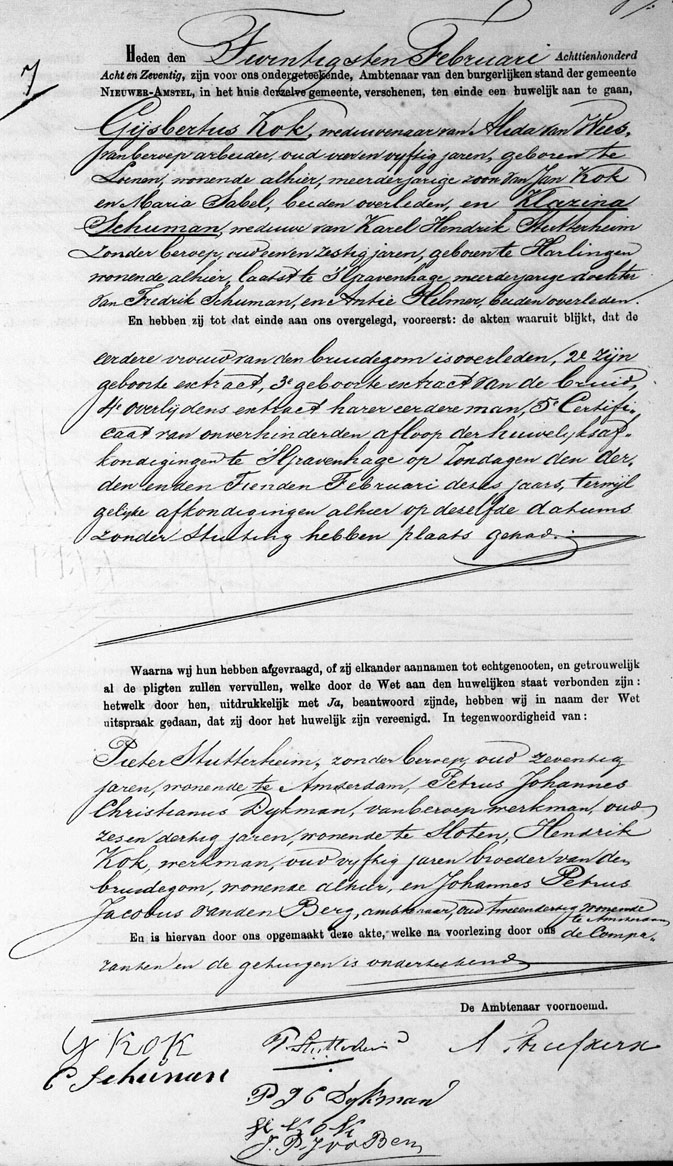 7
Heden den Twintigsten Februari Achttienhonderd
Acht en Zeventig, zijn voor ons ondergeteekende, Ambtenaar van den burgerlijken stand der gemeente
NIEUWER-AMSTEL, in het huis derzelve gemeente, verschenen, ten einde een huwelijk aan te gaan,
Gijsbertus Kok, weduwenaar van Alida van Wees,
van beroep arbeider, oud vier en vyftig jaren, geboren te
Loenen, wonende alhier, meerderjarige zoon van Jan Kok
en Maria Sabel, beiden overleden, en Klazina
Schuman, weduwe van Karel Hendrik Stutterheim
zonder beroep, oud een en zestig jaren, geboren te Harlingen
wonende alhier, laatst te 'sGravenhage, meerderjarige dochter
van Fredrik Schuman, en Antie Helmer, beiden overleden.
En hebben zij tot dat einde aan ons overgelegd, vooreerst: de akten waaruit blijkt, dat de
eerdere vrouw van den bruidegom is overleden, 2e zijn
geboorte extract, 3e geboorte extract van de bruid,
4e overlijdens extract harer eerdere man, 5e Certifi-
caat van onverhinderden afloop der huwelijksaf-
kondigingen te 'sGravenhage op Zondagen den der-
den en den Tienden Februari dezes jaars, terwijl
gelijke afkondigingen alhier op deselfde datums
zonder stuiting hebben plaats gehad.
Waarna wij hun hebben afgevraagd, of zij elkander aannamen tot echtgenooten, en getrouwelijk
al de pligten zullen vervullen, welke door de Wet aan den huwelijken staat verbonden zijn:
hetwelk door hen, uitdrukkelijk met Ja, beantwoord zijnde, hebben wij in naam der Wet
uitspraak gedaan, dat zij door het huwelijk zijn vereenigd. In tegenwoordigheid van:
Pieter Stutterheim, zonder beroep, oud zeventig
jaren, wonende te Amsterdam, Petrus Johannes
Christianus Dykman, van beroep werkman, oud
zes en dertig jaren, wonende te Sloten, Hendrik
Kok, werkman, oud vyftig jaren broeder van den
bruidegom, wonende alhier, en Johannes Petrus
Jacobus van den Berg, ambtenaar, oud twee en dertig wonende
te Amsterdam
En is hiervan door ons opgemaakt deze akte, welke na voorlezing door ons de Compa-
ranten en de getuigen is onderteekend
De Ambtenaar voornoemd.
G KOK
C Schuman
P. Stutterheim
P J C Dykman
H KOK